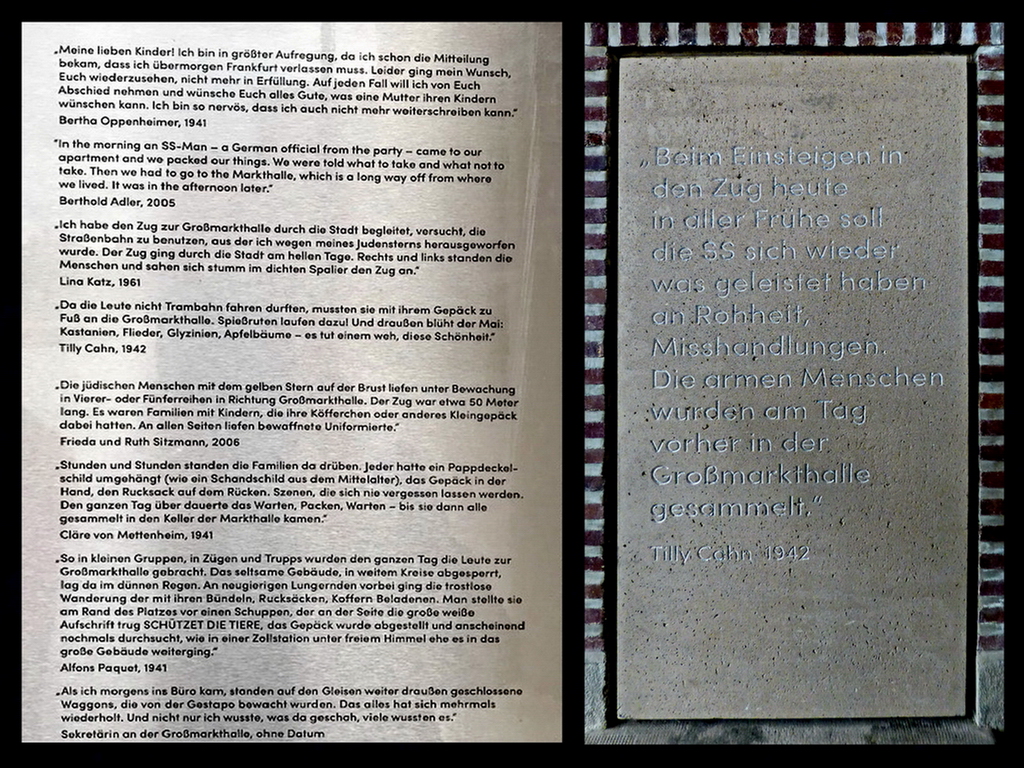 „Meine lieben Kinder! Ich bin in größter Aufregung, da ich schon die Mitteilung
bekam, dass ich übermorgen Frankfurt verlassen muss. Leider ging mein Wunsch,
Euch wiederzusehen, nicht mehr in Erfüllung. Auf jeden Fall will ich von Euch
Abschied nehmen und wünsche Euch alles Gute, was eine Mutter ihren Kindern
wünschen kann. Ich bin so nervös, dass ich auch nicht mehr weiterschreiben kann.“
Bertha Oppenheimer, 1941
"In the morning an SS-Man – a German official from the party – came to our
apartment and we packed our things. We were told what to take and what not to
take. Then we had to go to the Markthalle, which is a long way off from where
we lived. It was in the afternoon later."
Berthold Adler, 2005
„Ich habe den Zug zur Großmarkthalle durch die Stadt begleitet, versucht, die
Straßenbahn zu benutzen, aus der ich wegen meines Judensterns herausgeworfen
wurde. Der Zug ging durch die Stadt am hellen Tage. Rechts und links standen die
Menschen und sahen sich stumm im dichten Spalier den Zug an.“
Lina Katz, 1961
„Da die Leute nicht Trambahn fahren durften, mussten sie mit ihrem Gepäck zu
Fuß an die Großmarkthalle. Spießruten laufen dazu! Und draußen blüht der Mai:
Kastanien, Flieder, Glyzinien, Apfelbäume – es tut einem weh, diese Schönheit.“
Tilly Cahn, 1942
„Die jüdischen Menschen mit dem gelben Stern auf der Brust liefen unter Bewachung
in Vierer- oder Fünferreihen in Richtung Großmarkthalle. Der Zug war etwa 50 Meter
lang. Es waren Familien mit Kindern, die ihre Köfferchen oder anderes Kleingepäck
dabei hatten. An allen Seiten liefen bewaffnete Uniformierte.“
Frieda und Ruth Sitzmann, 2006
„Stunden und Stunden standen die Familien da drüben. Jeder hatte ein Pappdeckel-
schild umgehängt (wie ein Schandschild aus dem Mittelalter), das Gepäck in der
Hand, den Rucksack auf dem Rücken. Szenen, die sich nie vergessen lassen werden.
Den ganzen Tag über dauerte das Warten, Packen, Warten – bis sie dann alle
gesammelt in den Keller der Markthalle kamen.“
Cläre von Mettenheim, 1941
„So in kleinen Gruppen, in Zügen und Trupps wurden den ganzen Tag die Leute zur
Großmarkthalle gebracht. Das seltsame Gebäude, in weitem Kreise abgesperrt,
lag da im dünnen Regen. An neugierigen Lungernden vorbei ging die trostlose
Wanderung der mit ihren Bündeln, Rucksäcken, Koffern Beladenen. Man stellte sie
am Rand des Platzes vor einen Schuppen, der an der Seite die große weiße
Aufschrift trug SCHÜTZET DIE TIERE, das Gepäck wurde abgestellt und anscheinend
nochmals durchsucht, wie in einer Zollstation unter freiem Himmel ehe es in das
große Gebäude weiterging.“
Alfons Paquet, 1941
„Als ich morgens ins Büro kam, standen auf den Gleisen weiter draußen geschlossene
Waggons, die von der Gestapo bewacht wurden. Das alles hat sich mehrmals
wiederholt. Und nicht nur ich wusste, was da geschah, viele wussten es.“
Sekretärin an der Großmarkthalle, ohne Datum
„Beim Einsteigen in
den Zug heute
in aller Frühe soll
die SS sich wieder
was geleistet haben
an Rohheit,
Misshandlungen.
Die armen Menschen
wurden am Tag
vorher in der
Großmarkthalle
gesammelt.“
Tilly Cahn, 1942